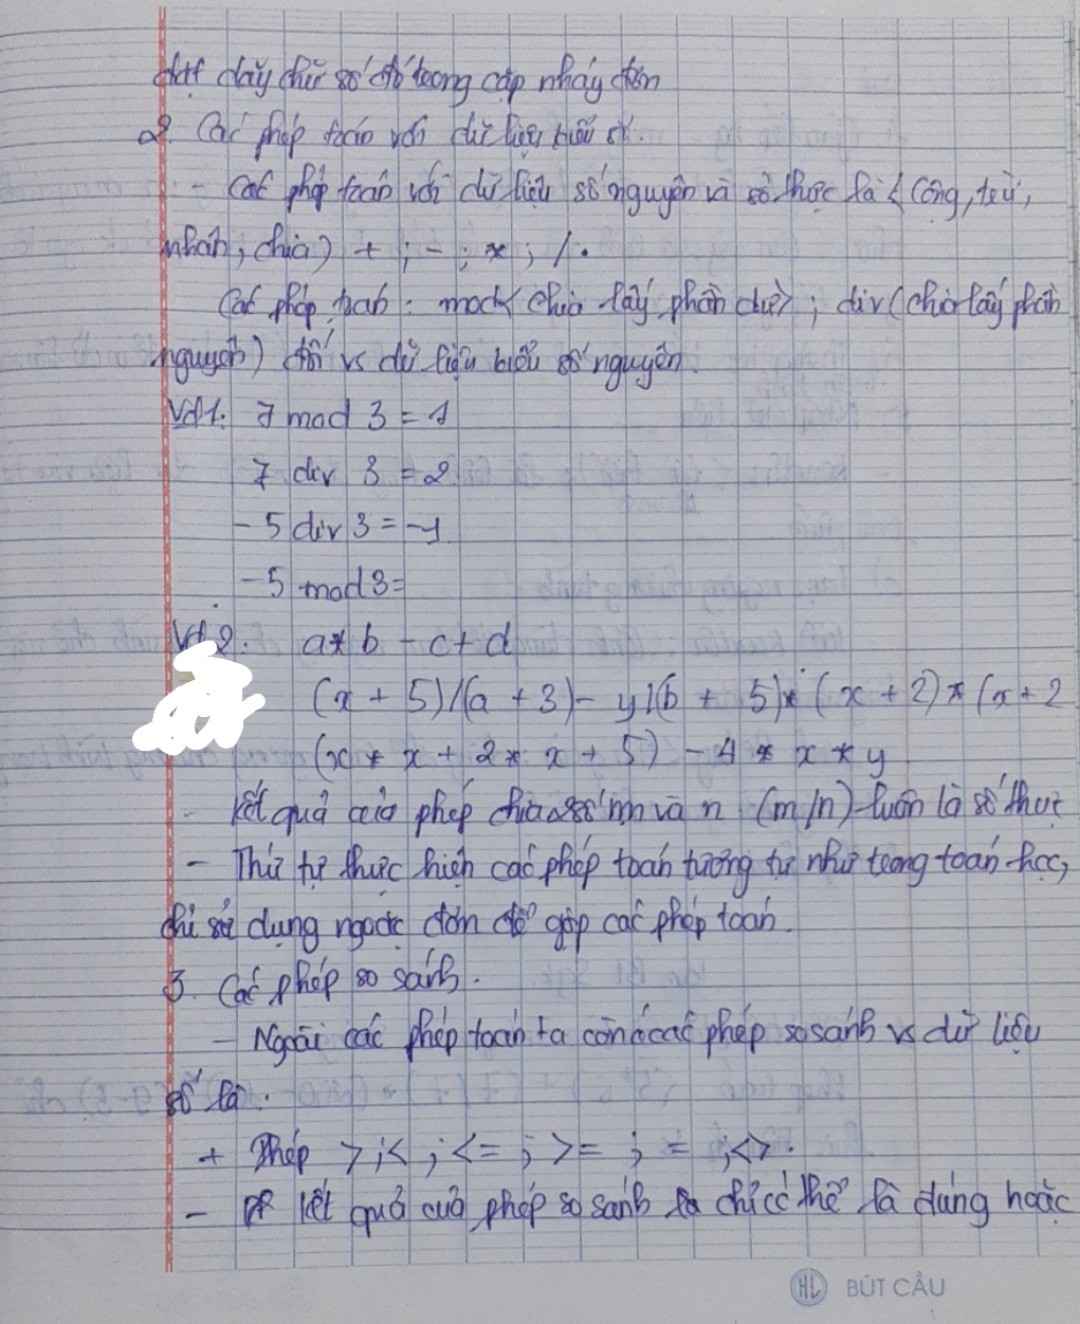 đặt dãy chữ số đó trong cặp nháy đơn
2. Các phép toán với dữ liệu kiểu số.
- Các phép toán với dữ liệu số nguyên và số thực là (Cộng, trừ,
nhân, chia) + ; - ; * ; / .
Các phép toán: mod (chia lấy phần dư) ; div (chia lấy phần
nguyên) đối vs dữ liệu kiểu số nguyên.
Vd1: 7 mod 3 = 1
7 div 3 = 2
- 5 div 3 = -1
- 5 mod 3 =
Vd 2: a * b - c + d
(x + 5)/(a + 3) - y/(b + 5) * (x + 2) * (x + 2
(x * x + 2 * x + 5) - 4 * x * y
- Kết quả của phép chia 2 số m và n (m/n) luôn là số thực
- Thứ tự thực hiện các phép toán tương tự như trong toán học,
chỉ sử dụng ngoặc đơn để gộp các phép toán.
3. Các phép so sánh.
- Ngoài các phép toán ta còn có các phép so sánh vs dữ liệu
số là:
+ Phép > ; < ; <= ; >= ; = ; <> .
- Kết quả của phép so sánh chỉ có thể là đúng hoặc
HL BÚT CẦU